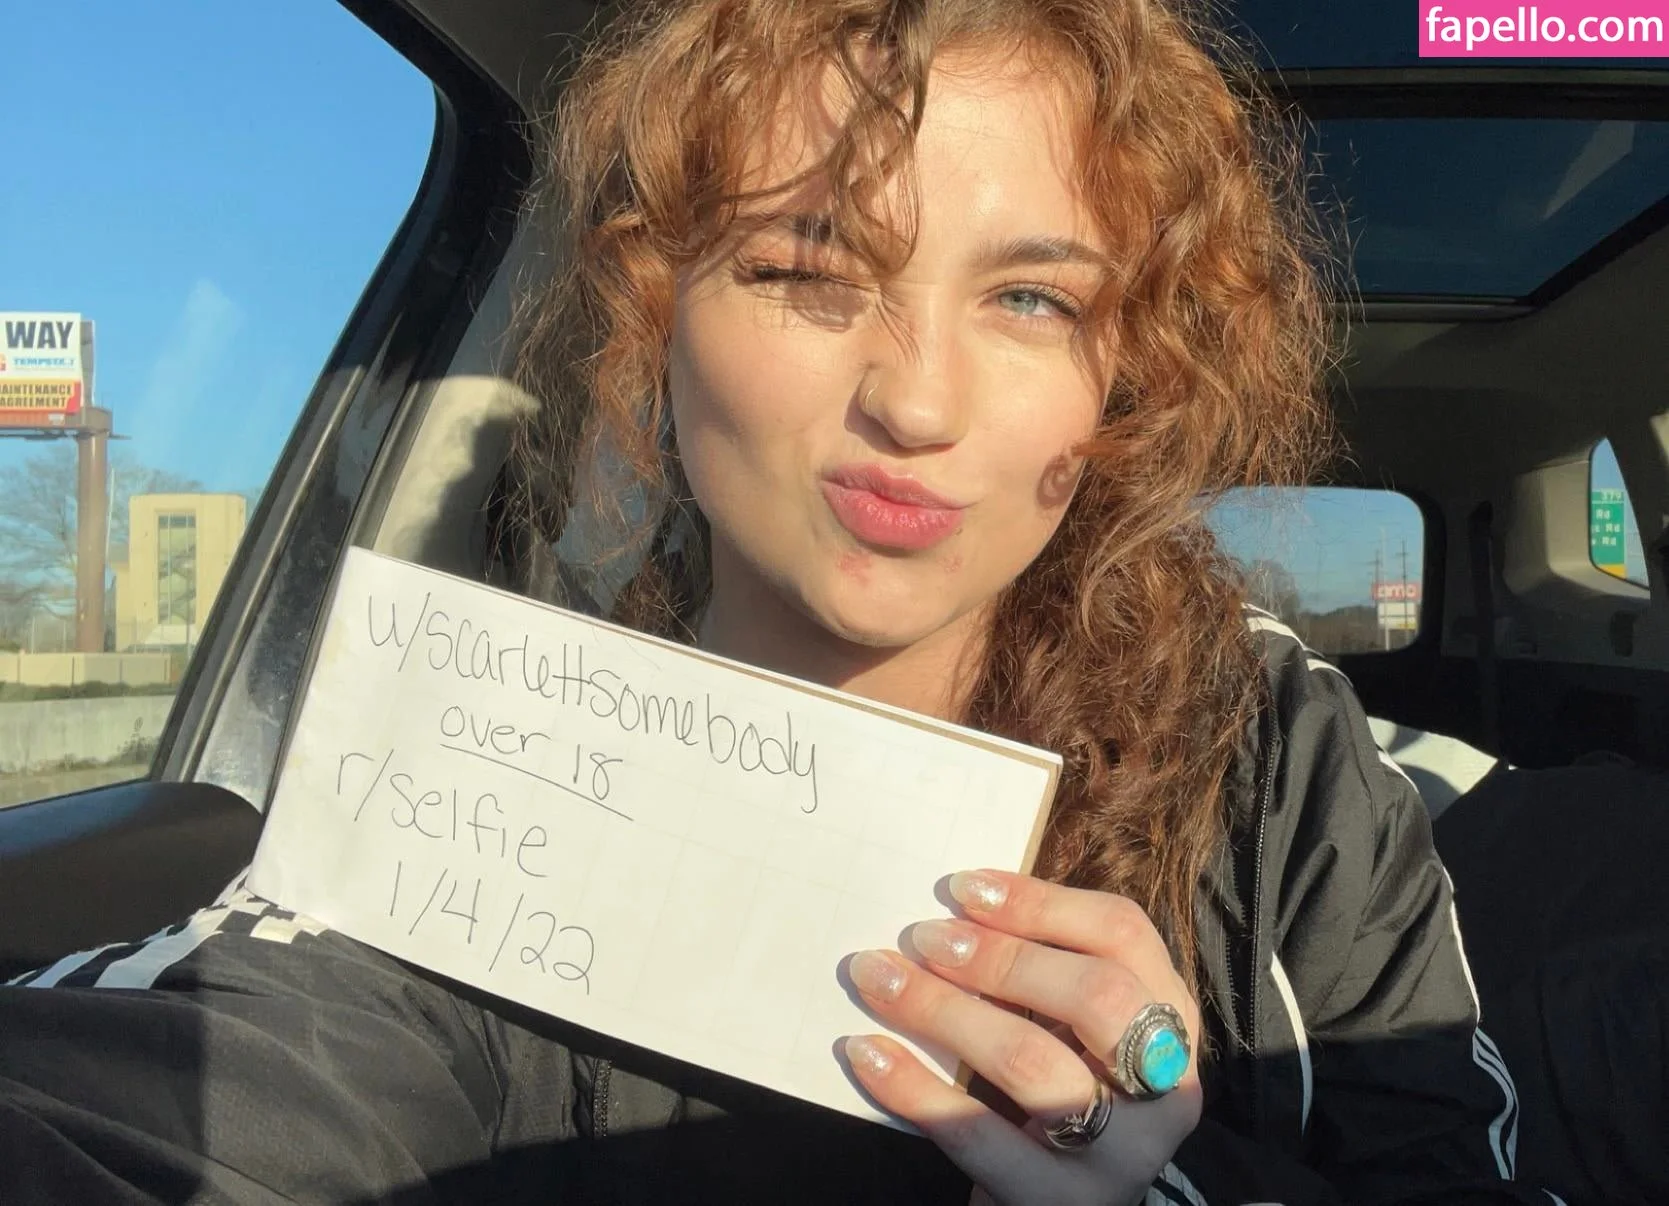 fapello.com
WAY
TEMPSTAR
MAINTENANCE
AGREEMENT
u/scarlettsomebody
over 18
r/selfie
1/4/22
379
Rd
Rd
Rd
amc